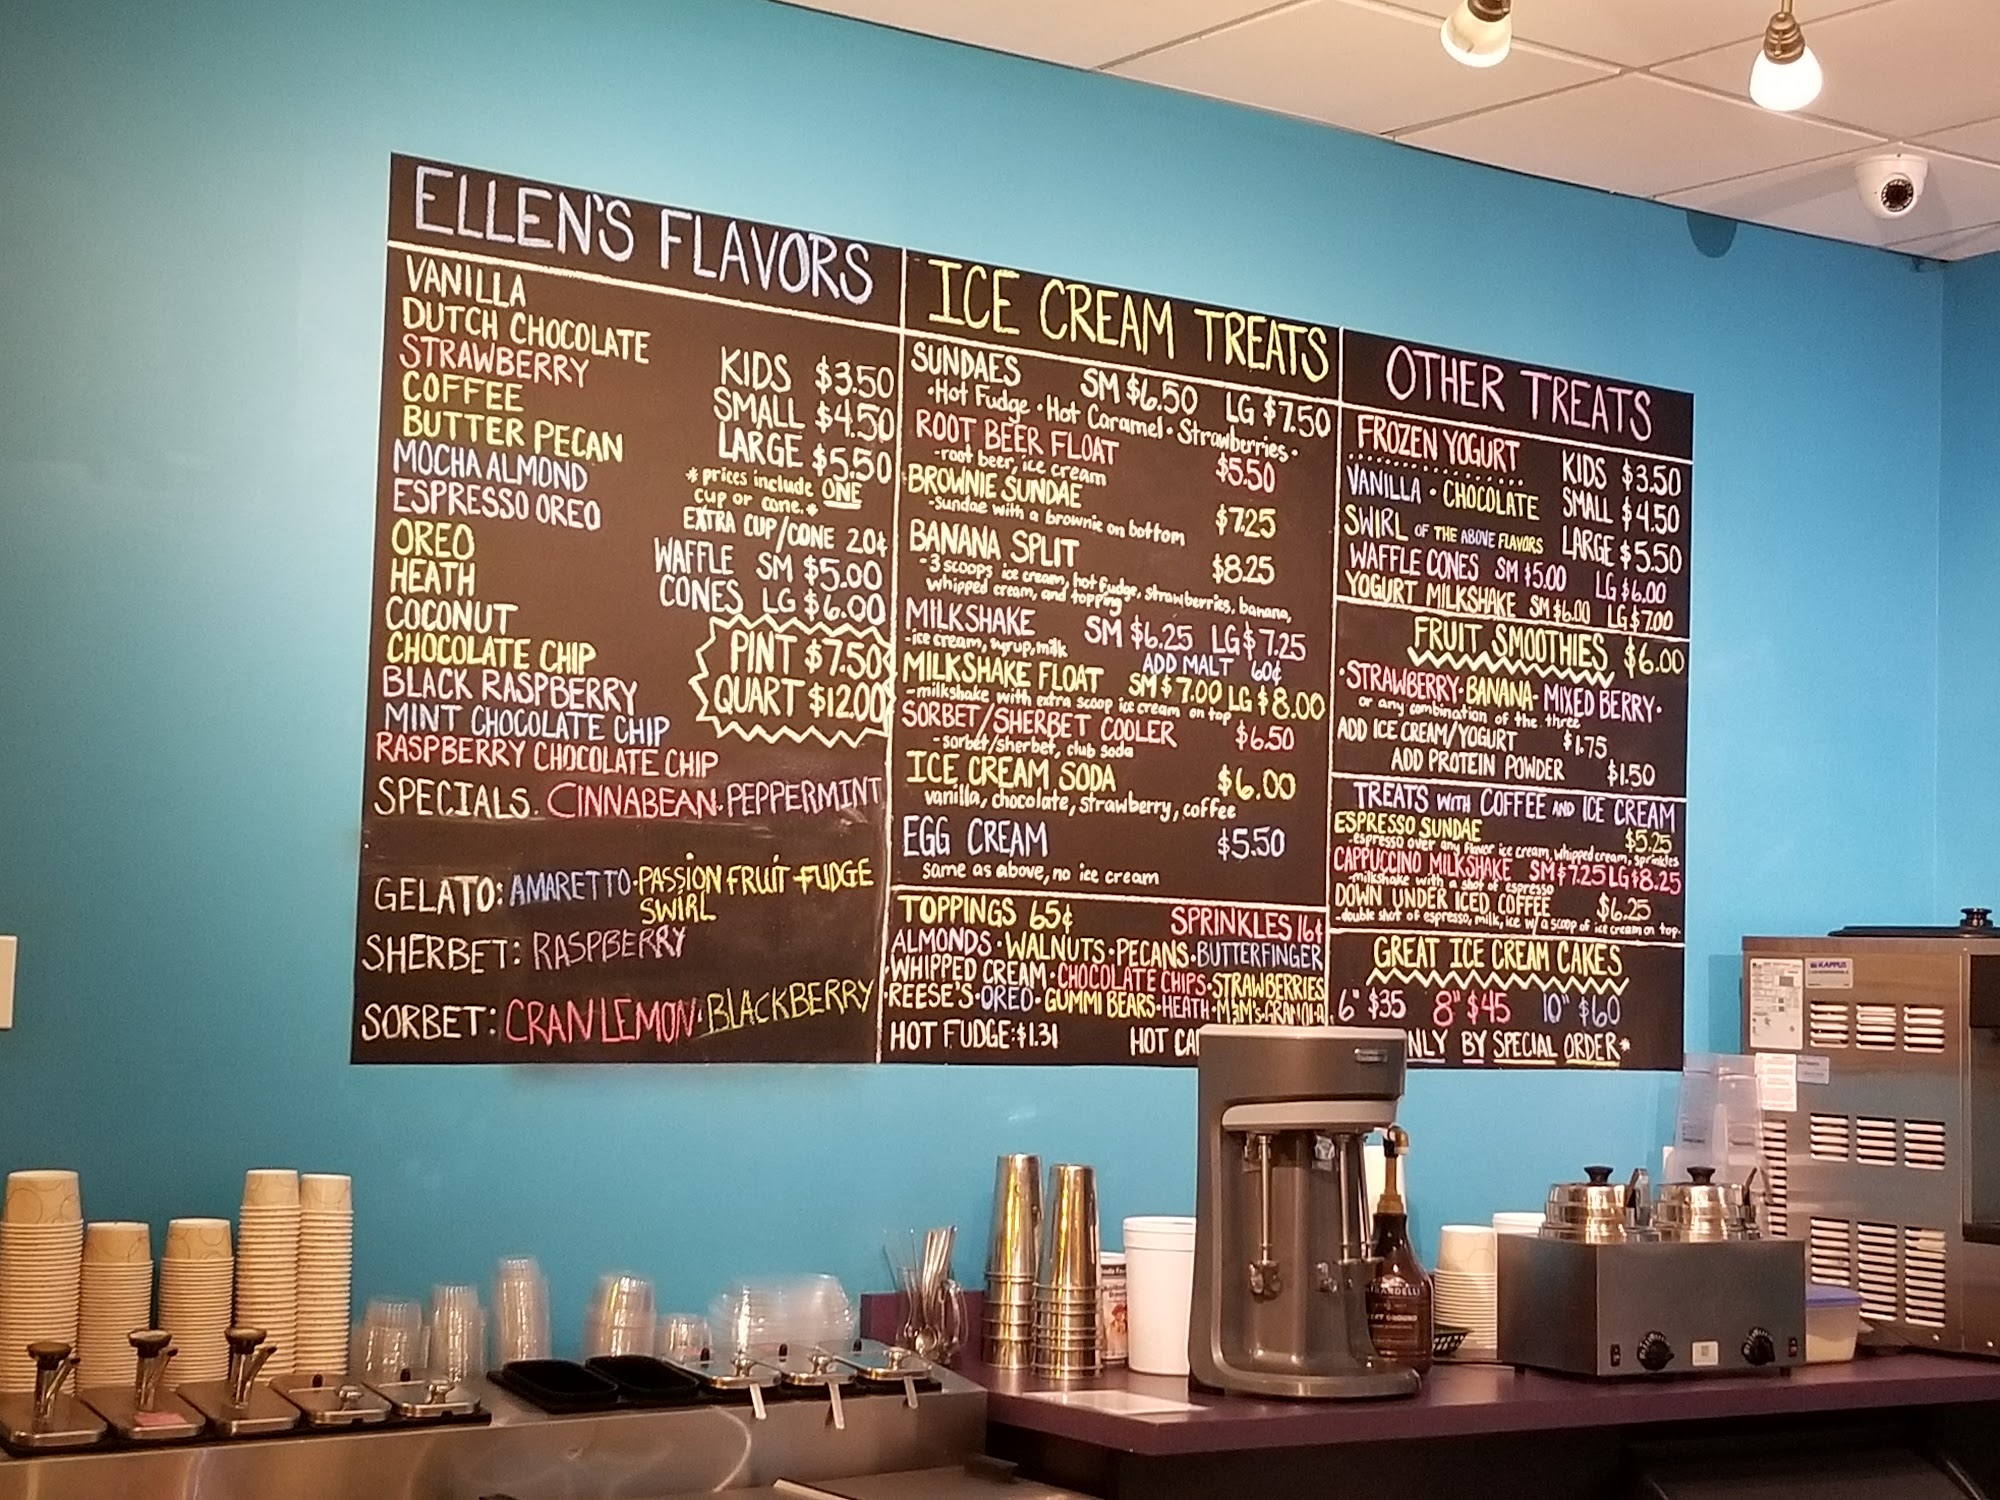 ELLEN'S FLAVORS
VANILLA
DUTCH CHOCOLATE
STRAWBERRY
COFFEE
BUTTER PECAN
MOCHA ALMOND
ESPRESSO OREO
OREO
HEATH
COCONUT
CHOCOLATE CHIP
BLACK RASPBERRY
MINT CHOCOLATE CHIP
RASPBERRY CHOCOLATE CHIP
KIDS $3.50
SMALL $4.50
LARGE $5.50
* prices include ONE
cup or cone. *
EXTRA CUP/CONE 20¢
WAFFLE SM $5.00
CONES LG $6.00
PINT $7.50
QUART $12.00
SPECIALS. CINNABEAN. PEPPERMINT
GELATO: AMARETTO · PASSION FRUIT - FUDGE
SWIRL
SHERBET: RASPBERRY
SORBET: CRAN LEMON · BLACKBERRY
ICE CREAM TREATS
SUNDAES SM $6.50 LG $7.50
· Hot Fudge · Hot Caramel · Strawberries ·
ROOT BEER FLOAT $5.50
- root beer, ice cream
BROWNIE SUNDAE $7.25
- sundae with a brownie on bottom
BANANA SPLIT $8.25
- 3 scoops ice cream, hot fudge, strawberries, banana,
whipped cream, and topping
MILKSHAKE SM $6.25 LG $7.25
- ice cream, syrup, milk ADD MALT 60¢
MILKSHAKE FLOAT SM $7.00 LG $8.00
- milkshake with extra scoop ice cream on top
SORBET/SHERBET COOLER $6.50
- sorbet/sherbet, club soda
ICE CREAM SODA $6.00
vanilla, chocolate, strawberry, coffee
EGG CREAM $5.50
same as above, no ice cream
TOPPINGS 65¢ SPRINKLES 16¢
ALMONDS · WALNUTS · PECANS · BUTTERFINGER
· WHIPPED CREAM · CHOCOLATE CHIPS · STRAWBERRIES
· REESE'S · OREO · GUMMI BEARS · HEATH · M&M's · GRANOLA
HOT FUDGE: $1.31 HOT CA
OTHER TREATS
FROZEN YOGURT
VANILLA · CHOCOLATE
SWIRL OF THE ABOVE FLAVORS
KIDS $3.50
SMALL $4.50
LARGE $5.50
WAFFLE CONES SM $5.00 LG $6.00
YOGURT MILKSHAKE SM $6.00 LG $7.00
FRUIT SMOOTHIES $6.00
· STRAWBERRY · BANANA · MIXED BERRY ·
or any combination of the three
ADD ICE CREAM/YOGURT $1.75
ADD PROTEIN POWDER $1.50
TREATS WITH COFFEE AND ICE CREAM
ESPRESSO SUNDAE $5.25
- espresso over any flavor ice cream, whipped cream, sprinkles
CAPPUCCINO MILKSHAKE SM $7.25 LG $8.25
- milkshake with a shot of espresso
DOWN UNDER ICED COFFEE $6.25
- double shot of espresso, milk, ice w/ a scoop of ice cream on top.
GREAT ICE CREAM CAKES
6" $35 8" $45 10" $60
NLY BY SPECIAL ORDER*
KAPPUS